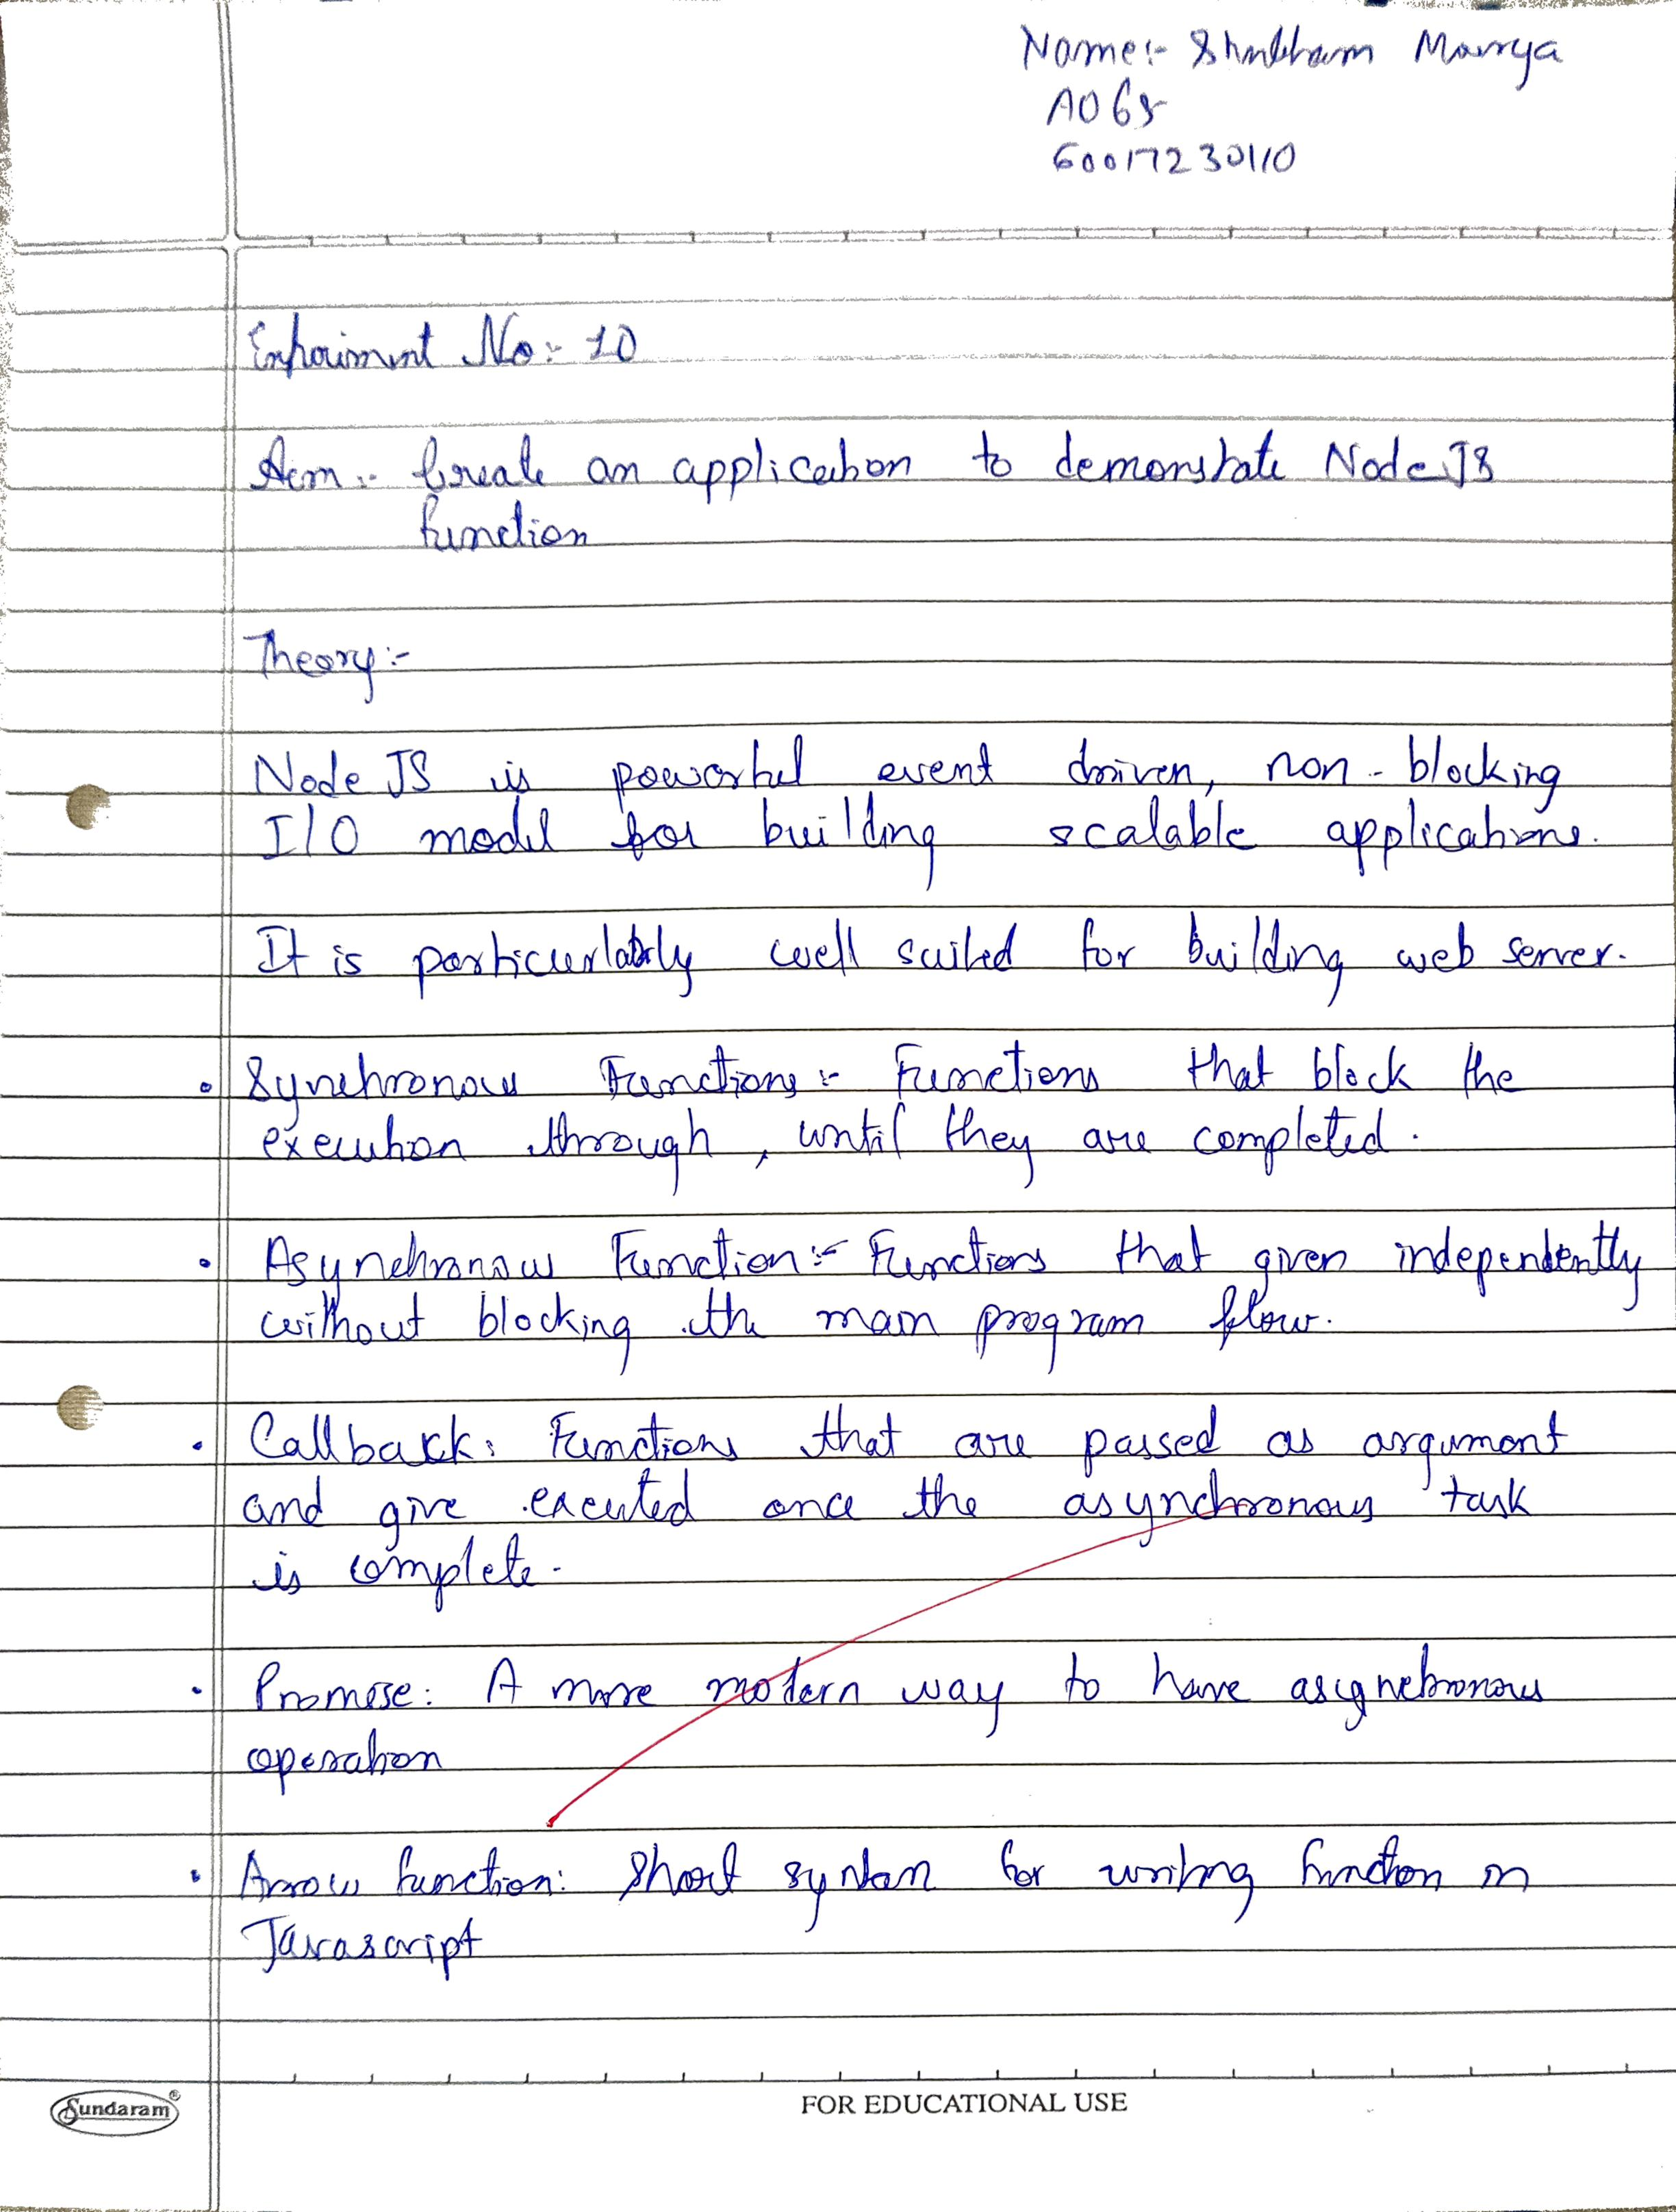 Name:- Shubham Maurya
A068
60017230110
Expoiment No:- 10
Aim:- Create an application to demonstate NodeJS
function
Theory:-
Node JS is poworful event driven, non-blocking
I/O model for building scalable applications.
It is particurlarly well suited for building web server.
• Synchronous Functions:- Functions that block the
execution through, until they are completed.
• Asynchronous Function:- Functions that given independently
without blocking the main program flow.
• Callback: Functions that are passed as argument
and give executed once the asynchronous task
is complete.
• Promise: A more modern way to have asignchronous
operation
• Arrow function: Short syntax for writing function in
Javascript
Sundaram®
FOR EDUCATIONAL USE